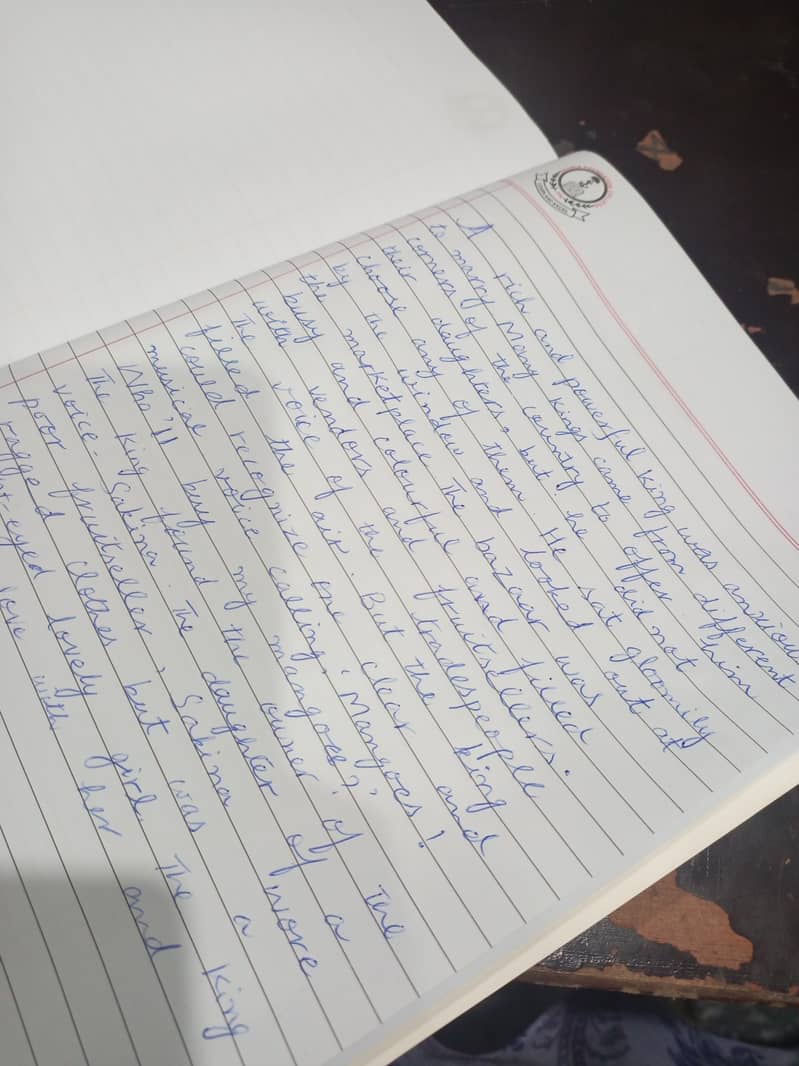 A rich and powerful king was anxious
to marry Many kings came from different
corners of the country to offer him
their daughters. but he did not
choose any of them. He sat gloomily
by the window and looked out at
the marketplace. The bazaar was
busy and colourful and filled
with vendors and fruitsellers.
The voice of the tradespeople
filled the air. But the king
could recognize one clear and
musical voice calling, 'Mangoes!
Who'll buy my mangoes?'
The king found the owner of the
voice- Sabina. The daughter of a
poor fruitseller, Sabina wore
ragged clothes but was a
t-eyed lovely girl. The king
love with her and